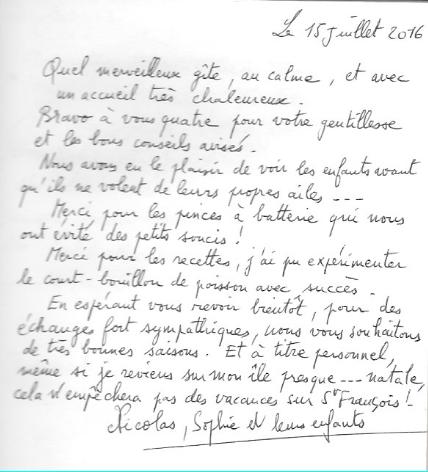 Le 15 Juillet 2016
Quel merveilleux gîte, au calme, et avec
un accueil très chaleureux.
Bravo à vous quatre pour votre gentillesse
et les bons conseils avisés.
Nous avons eu le plaisir de voir les enfants avant
qu'ils ne volent de leurs propres ailes ---
Merci pour les pinces à batterie qui nous
ont évité des petits soucis !
Merci pour les recettes, j'ai pu expérimenter
le court-bouillon de poisson avec succès.
En espérant vous revoir bientôt, pour des
échanges fort sympathiques, nous vous souhaitons
de très bonnes saisons. Et à titre personnel,
même si je reviens sur mon île presque --- natale,
cela n'empêchera pas des vacances sur St François !
Nicolas, Sophie et leurs enfants